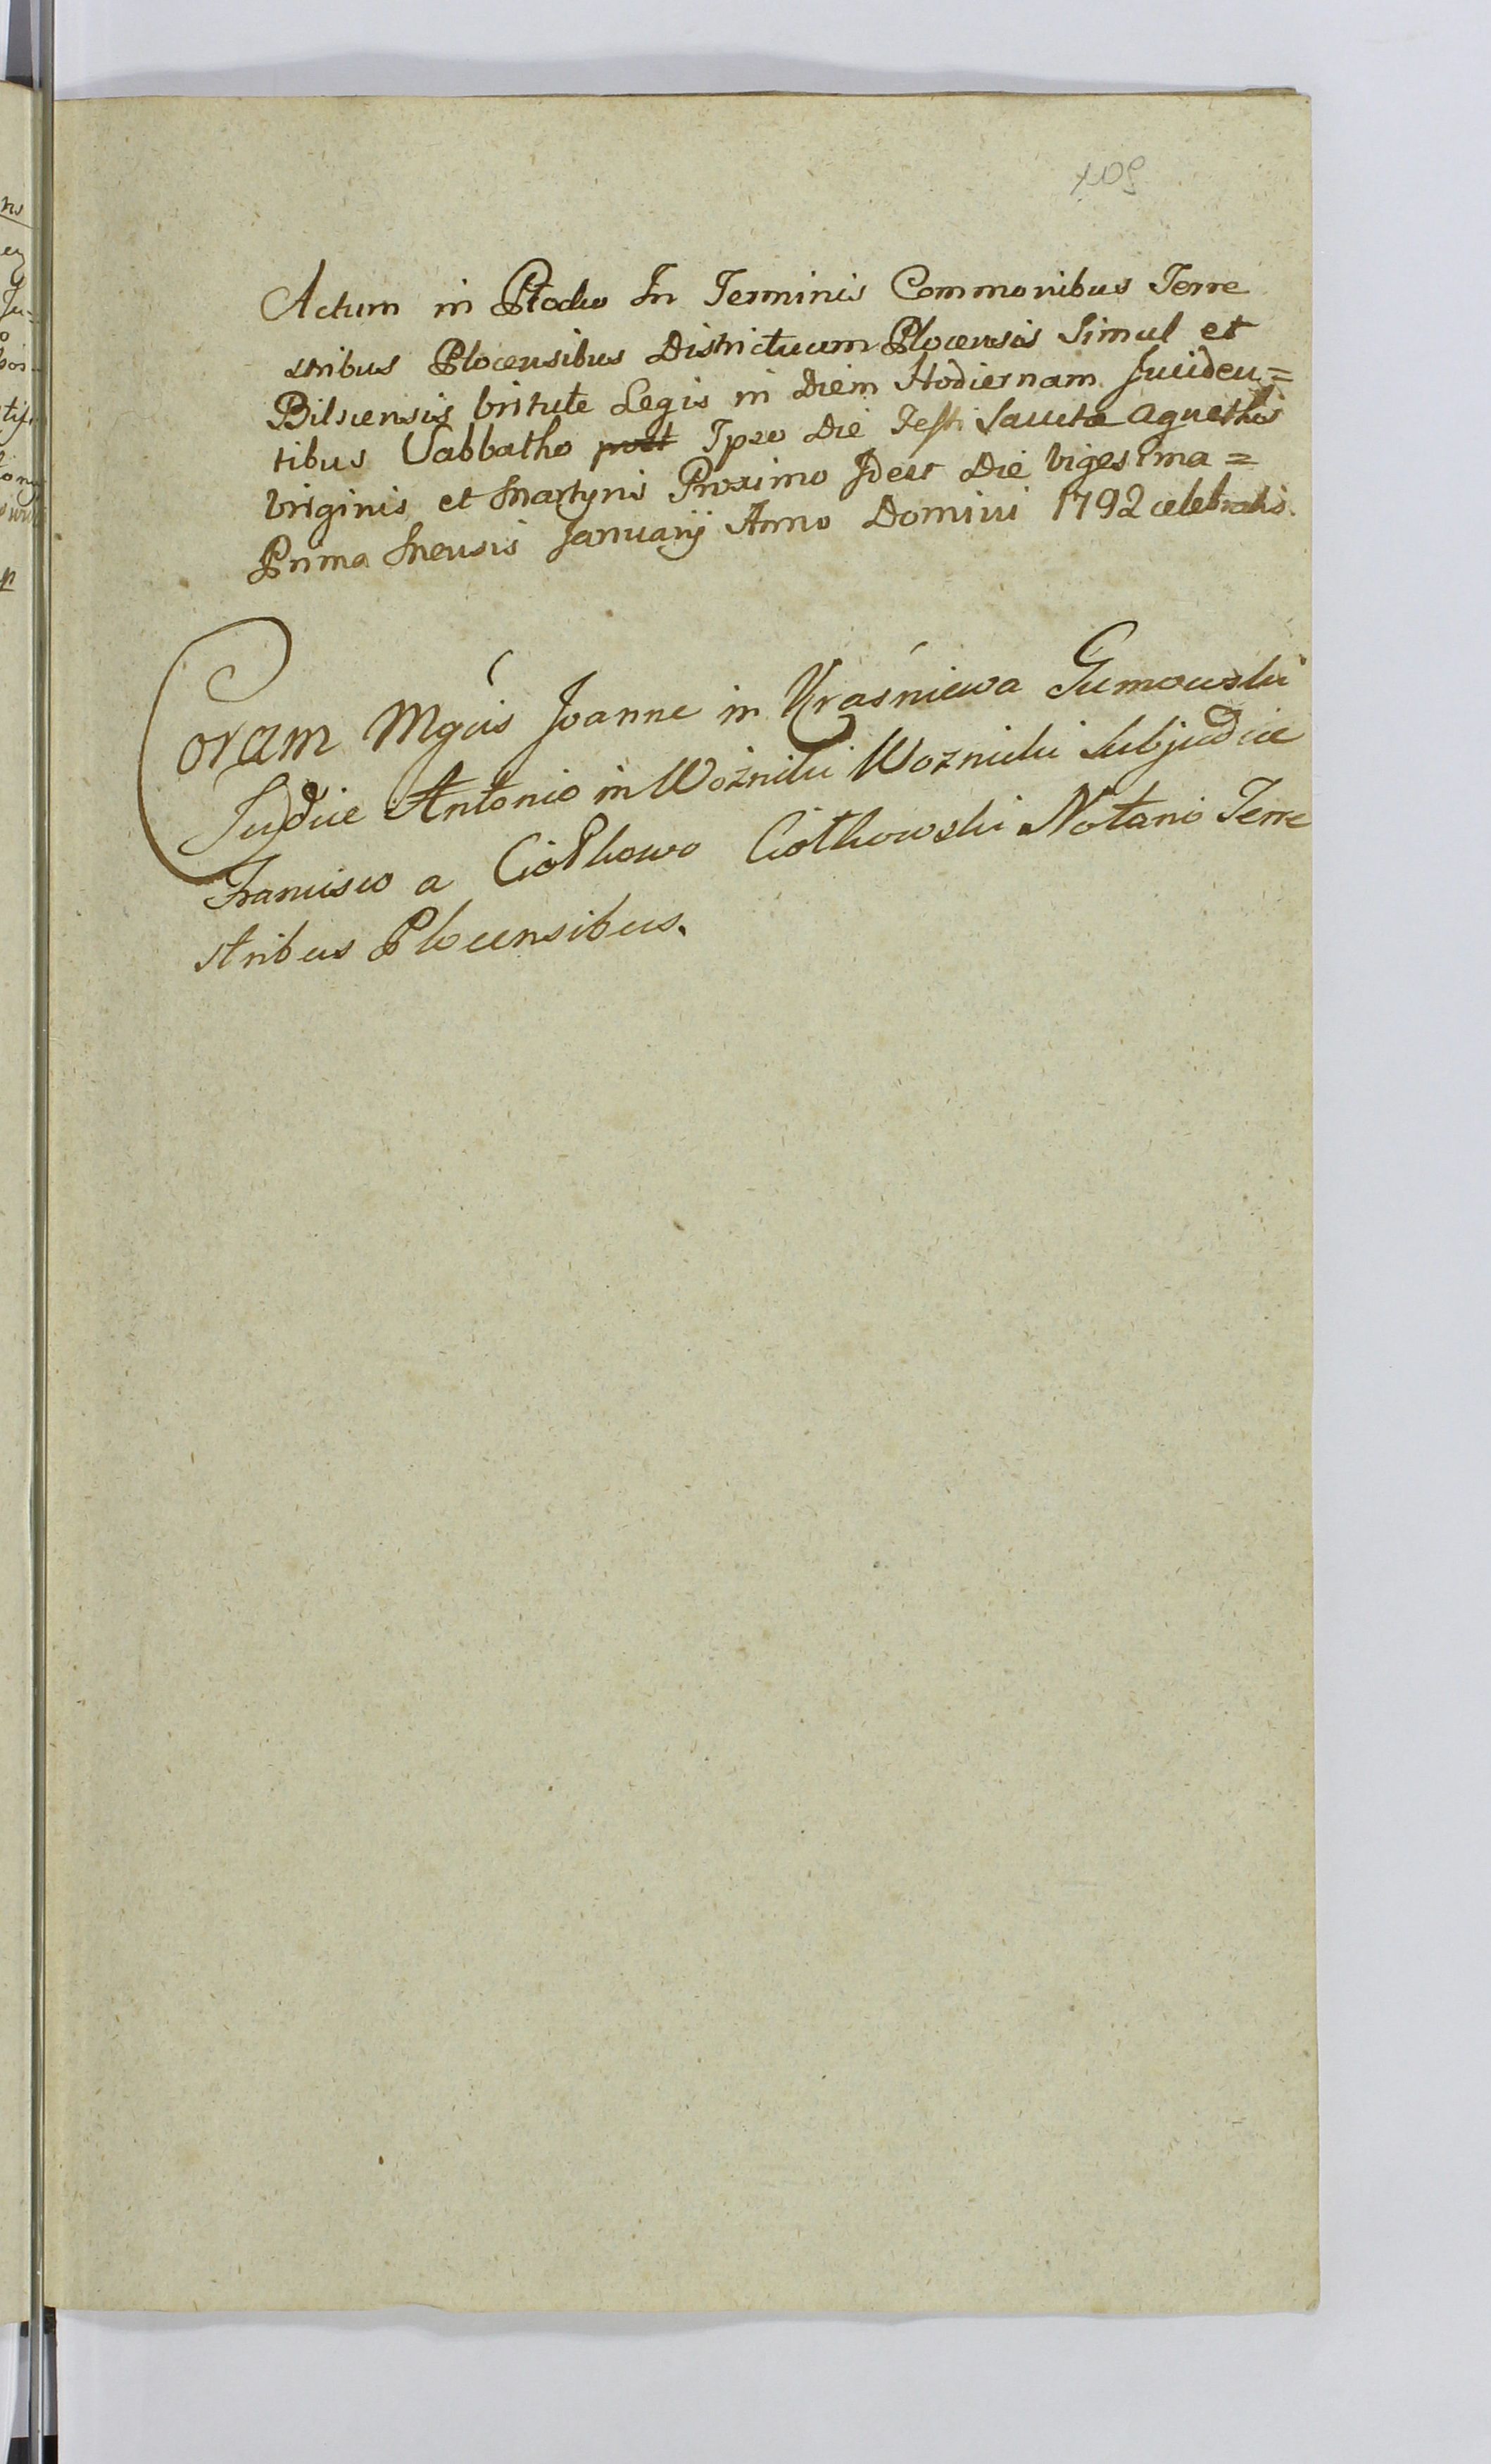 109
Actum in Płocko In Terminis Commonibus Terre
stribus Plocensibus Districtuum Plocensis Simul et
Bilscensis Virtute Legis in Diem Hodiernam Inciden=
tibus Sabbatho post Ipso Die Festi Sanctæ Agnethis
Virginis et Martyris Proximo Idest Die Vigesima=
Prima Mensis Januarij Anno Domini 1792 celebratis.
Coram Mgcis Joanne in Kraśniewa Gumowski
Judice Antonio in Woźniki Woznicki Subjudice
Francisco a Ciołkowo Ciołkowski Notario Terre
stribus Plocensibus.